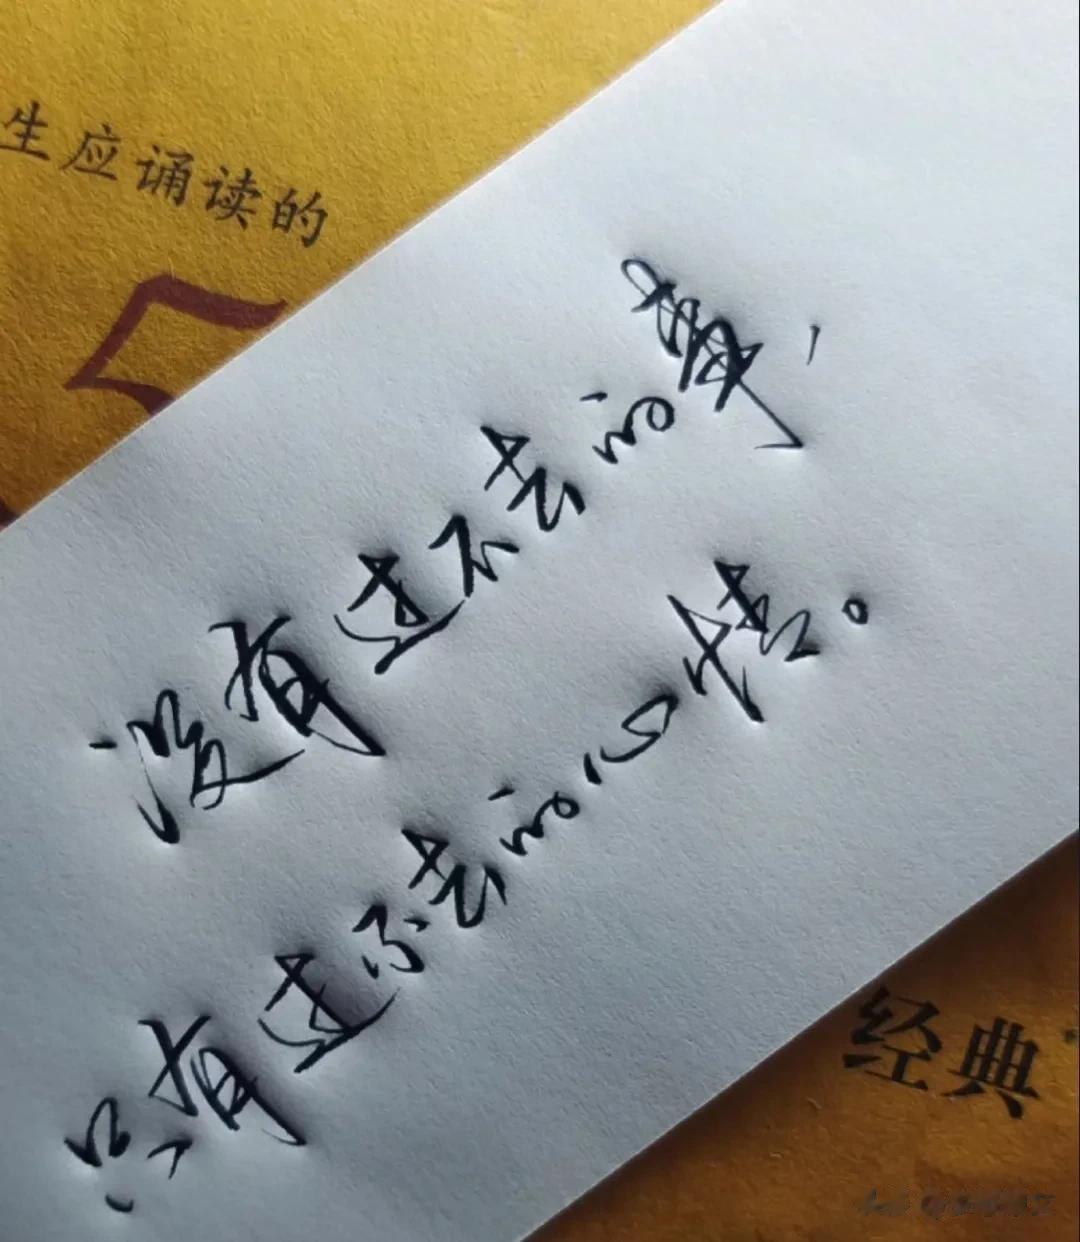 生应诵读的
没有过不去的事，
只有过不去的心情。
经典